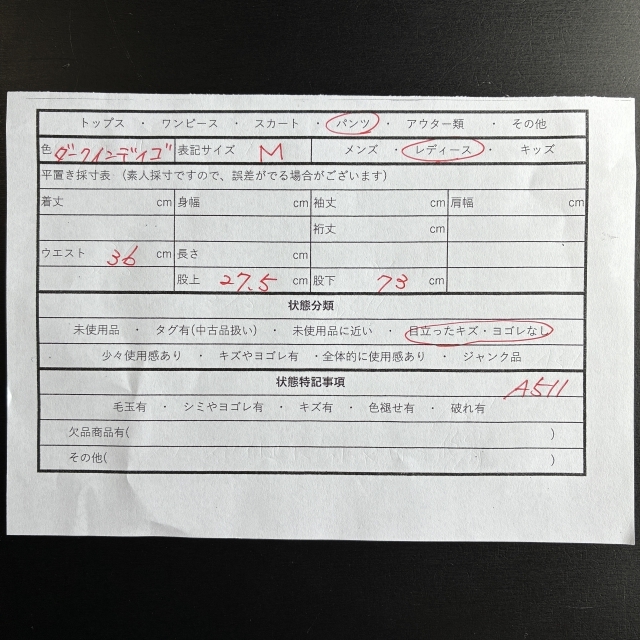 トップス ・ ワンピース ・ スカート ・ パンツ ・ アウター類 ・ その他
色 ダークインディゴ 表記サイズ M メンズ ・ レディース ・ キッズ
平置き採寸表 （素人採寸ですので、誤差がでる場合がございます）
着丈 cm 身幅 cm 袖丈 cm 肩幅 cm
裄丈 cm
ウエスト 36 cm 長さ cm
股上 27.5 cm 股下 73 cm
状態分類
未使用品 ・ タグ有(中古品扱い) ・ 未使用品に近い ・ 目立ったキズ・ヨゴレなし
少々使用感あり ・ キズやヨゴレ有 ・全体的に使用感あり ・ ジャンク品
状態特記事項 A511
毛玉有 ・ シミやヨゴレ有 ・ キズ有 ・ 色褪せ有 ・ 破れ有
欠品商品有( )
その他( )